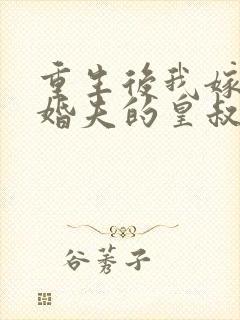 重生後我嫁
婚夫的皇叔
谷莠子